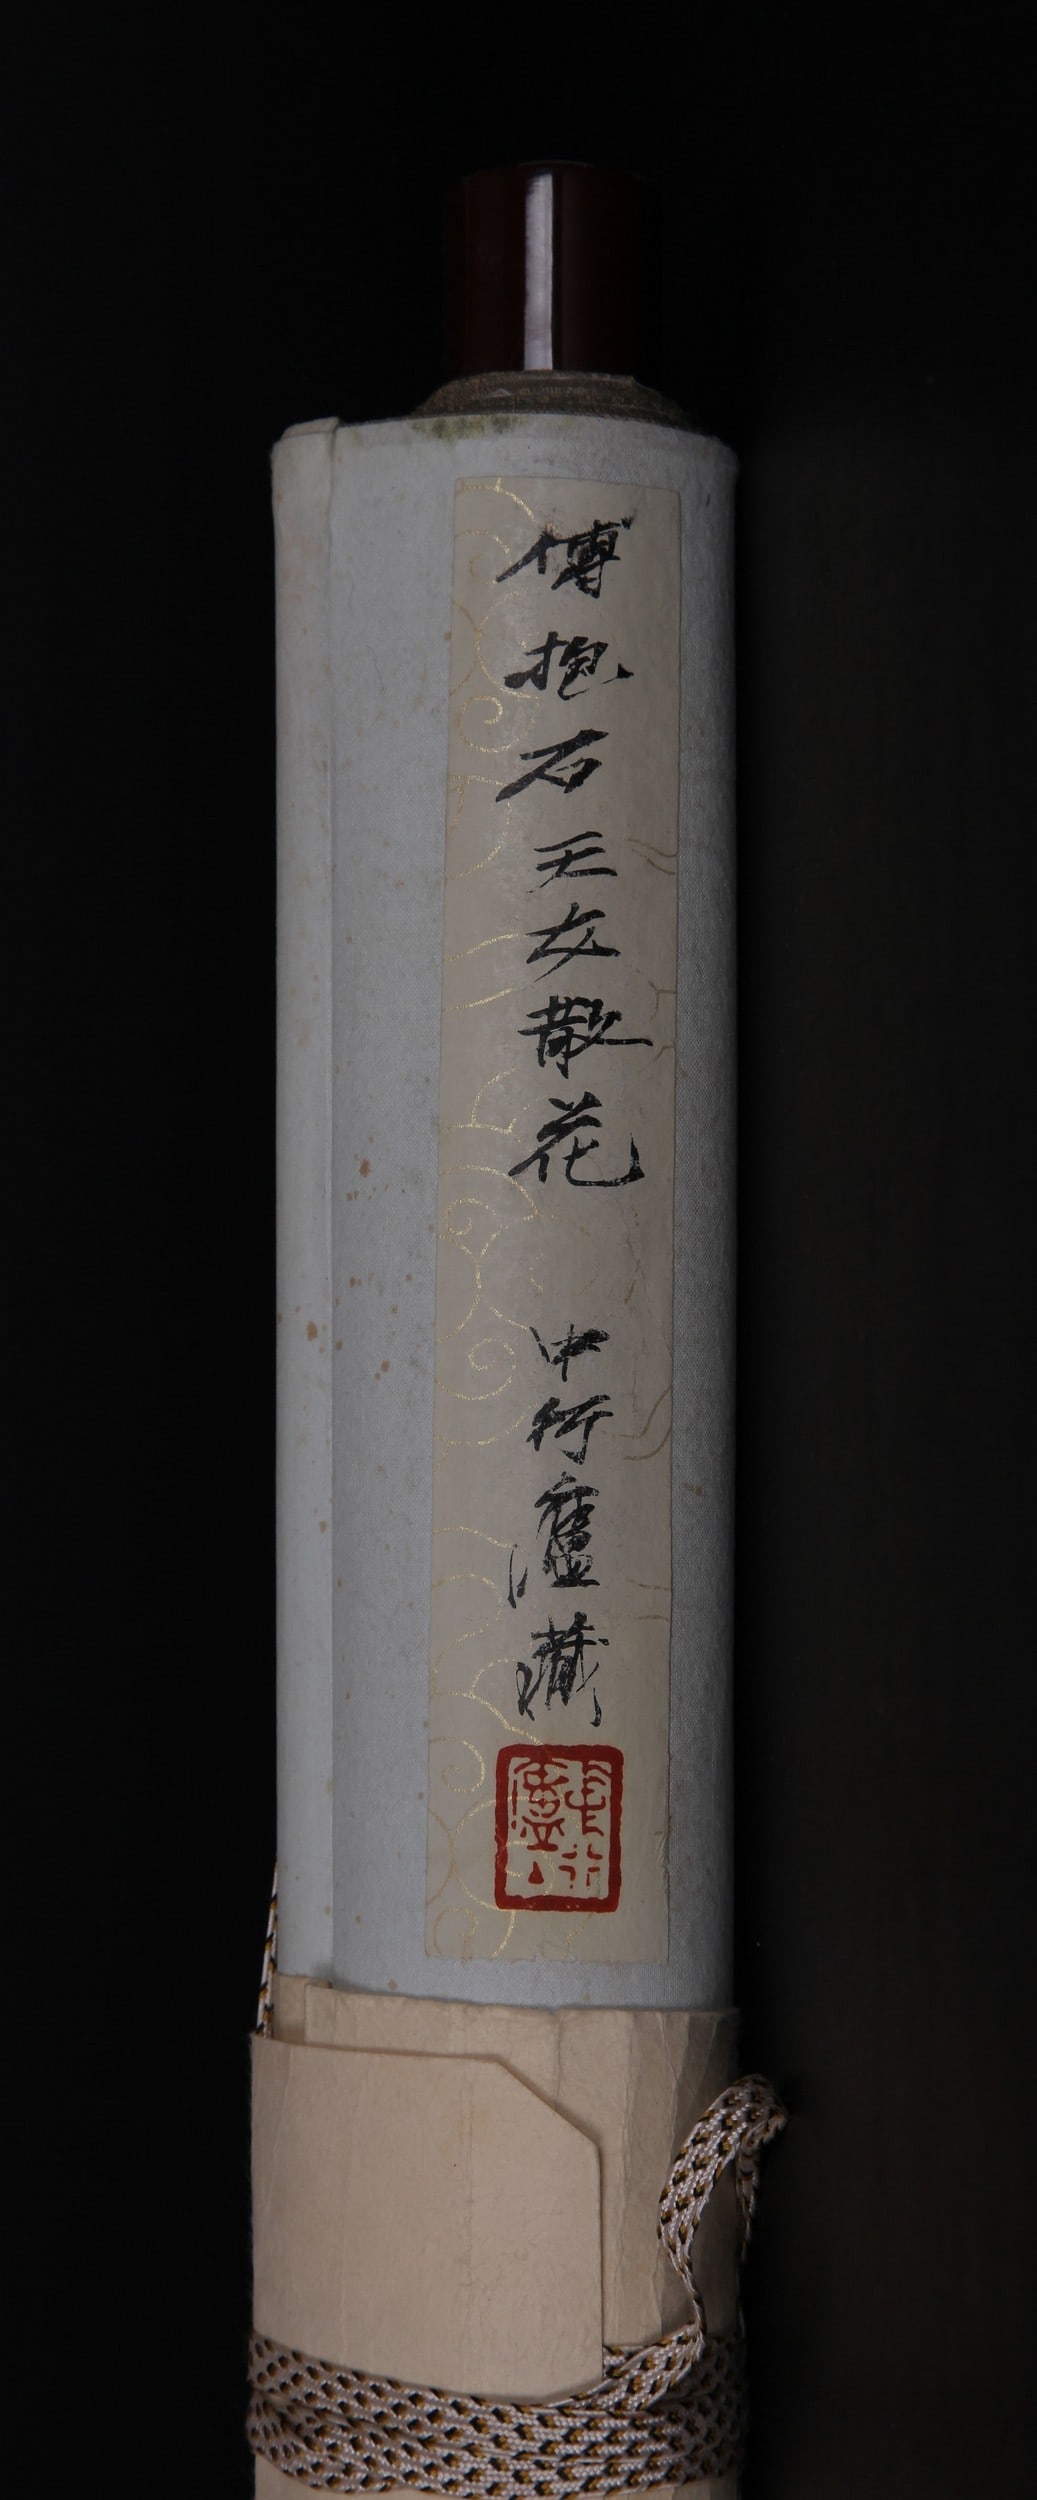 傅抱石天女散花 中行廬藏